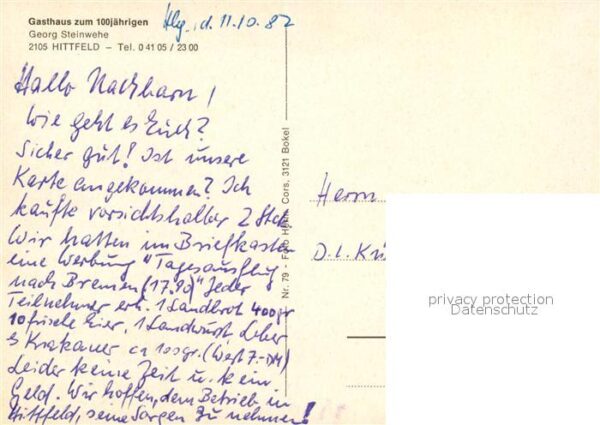 Gasthaus zum 100jährigen
Georg Steinwehe
2105 HITTFELD – Tel. 0 41 05 / 23 00
Hbg., d. 11.10.82
Hallo Nachbarn!
Wie geht es Euch?
Sicher gut! Ist unsere
Karte angekommen? Ich
kaufte vorsichtshalber 2 Stck
Wir hatten im Briefkasten
eine Werbung "Tagesausflug
nach Bremen (17.80)" Jeder
Teilnehmer erh. 1 Landbrot 400gr
10 frische Eier, 1 Landwurst, Leber
& Krakauer ca 100gr. (Wert 7.-DM)
Leider keine Zeit u. kein
Geld. Wir hoffen, dem Betrieb in
Hittfeld, seine Sorgen zu nehmen!
Nr. 79 - Foto Cors, 3121 Bokel
Herrn
D.L. Krü
privacy protection
Datenschutz